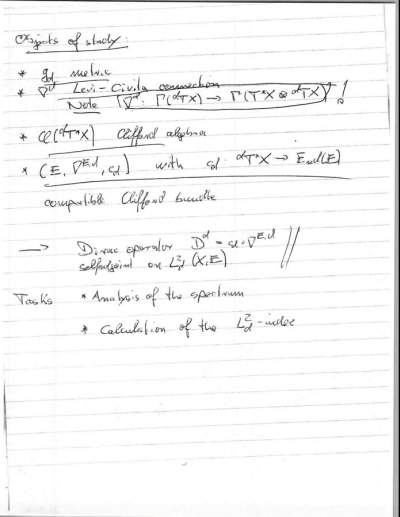 Objects of study:
* g_d metric
* ∇^d Levi-Civita connection
Note ∇^d: Γ(^dTX) → Γ(T*X ⊗ ^dTX) !
* Cl(^dT*X) Clifford algebra
* (E, ∇^{E,d}, c_d) with c_d: ^dT*X → End(E)
compatible Clifford bundle
→ Dirac operator D^d = c_d∘∇^{E,d}
selfadjoint on L²_d(X,E)
Tasks * Analysis of the spectrum
* Calculation of the L²_d-index